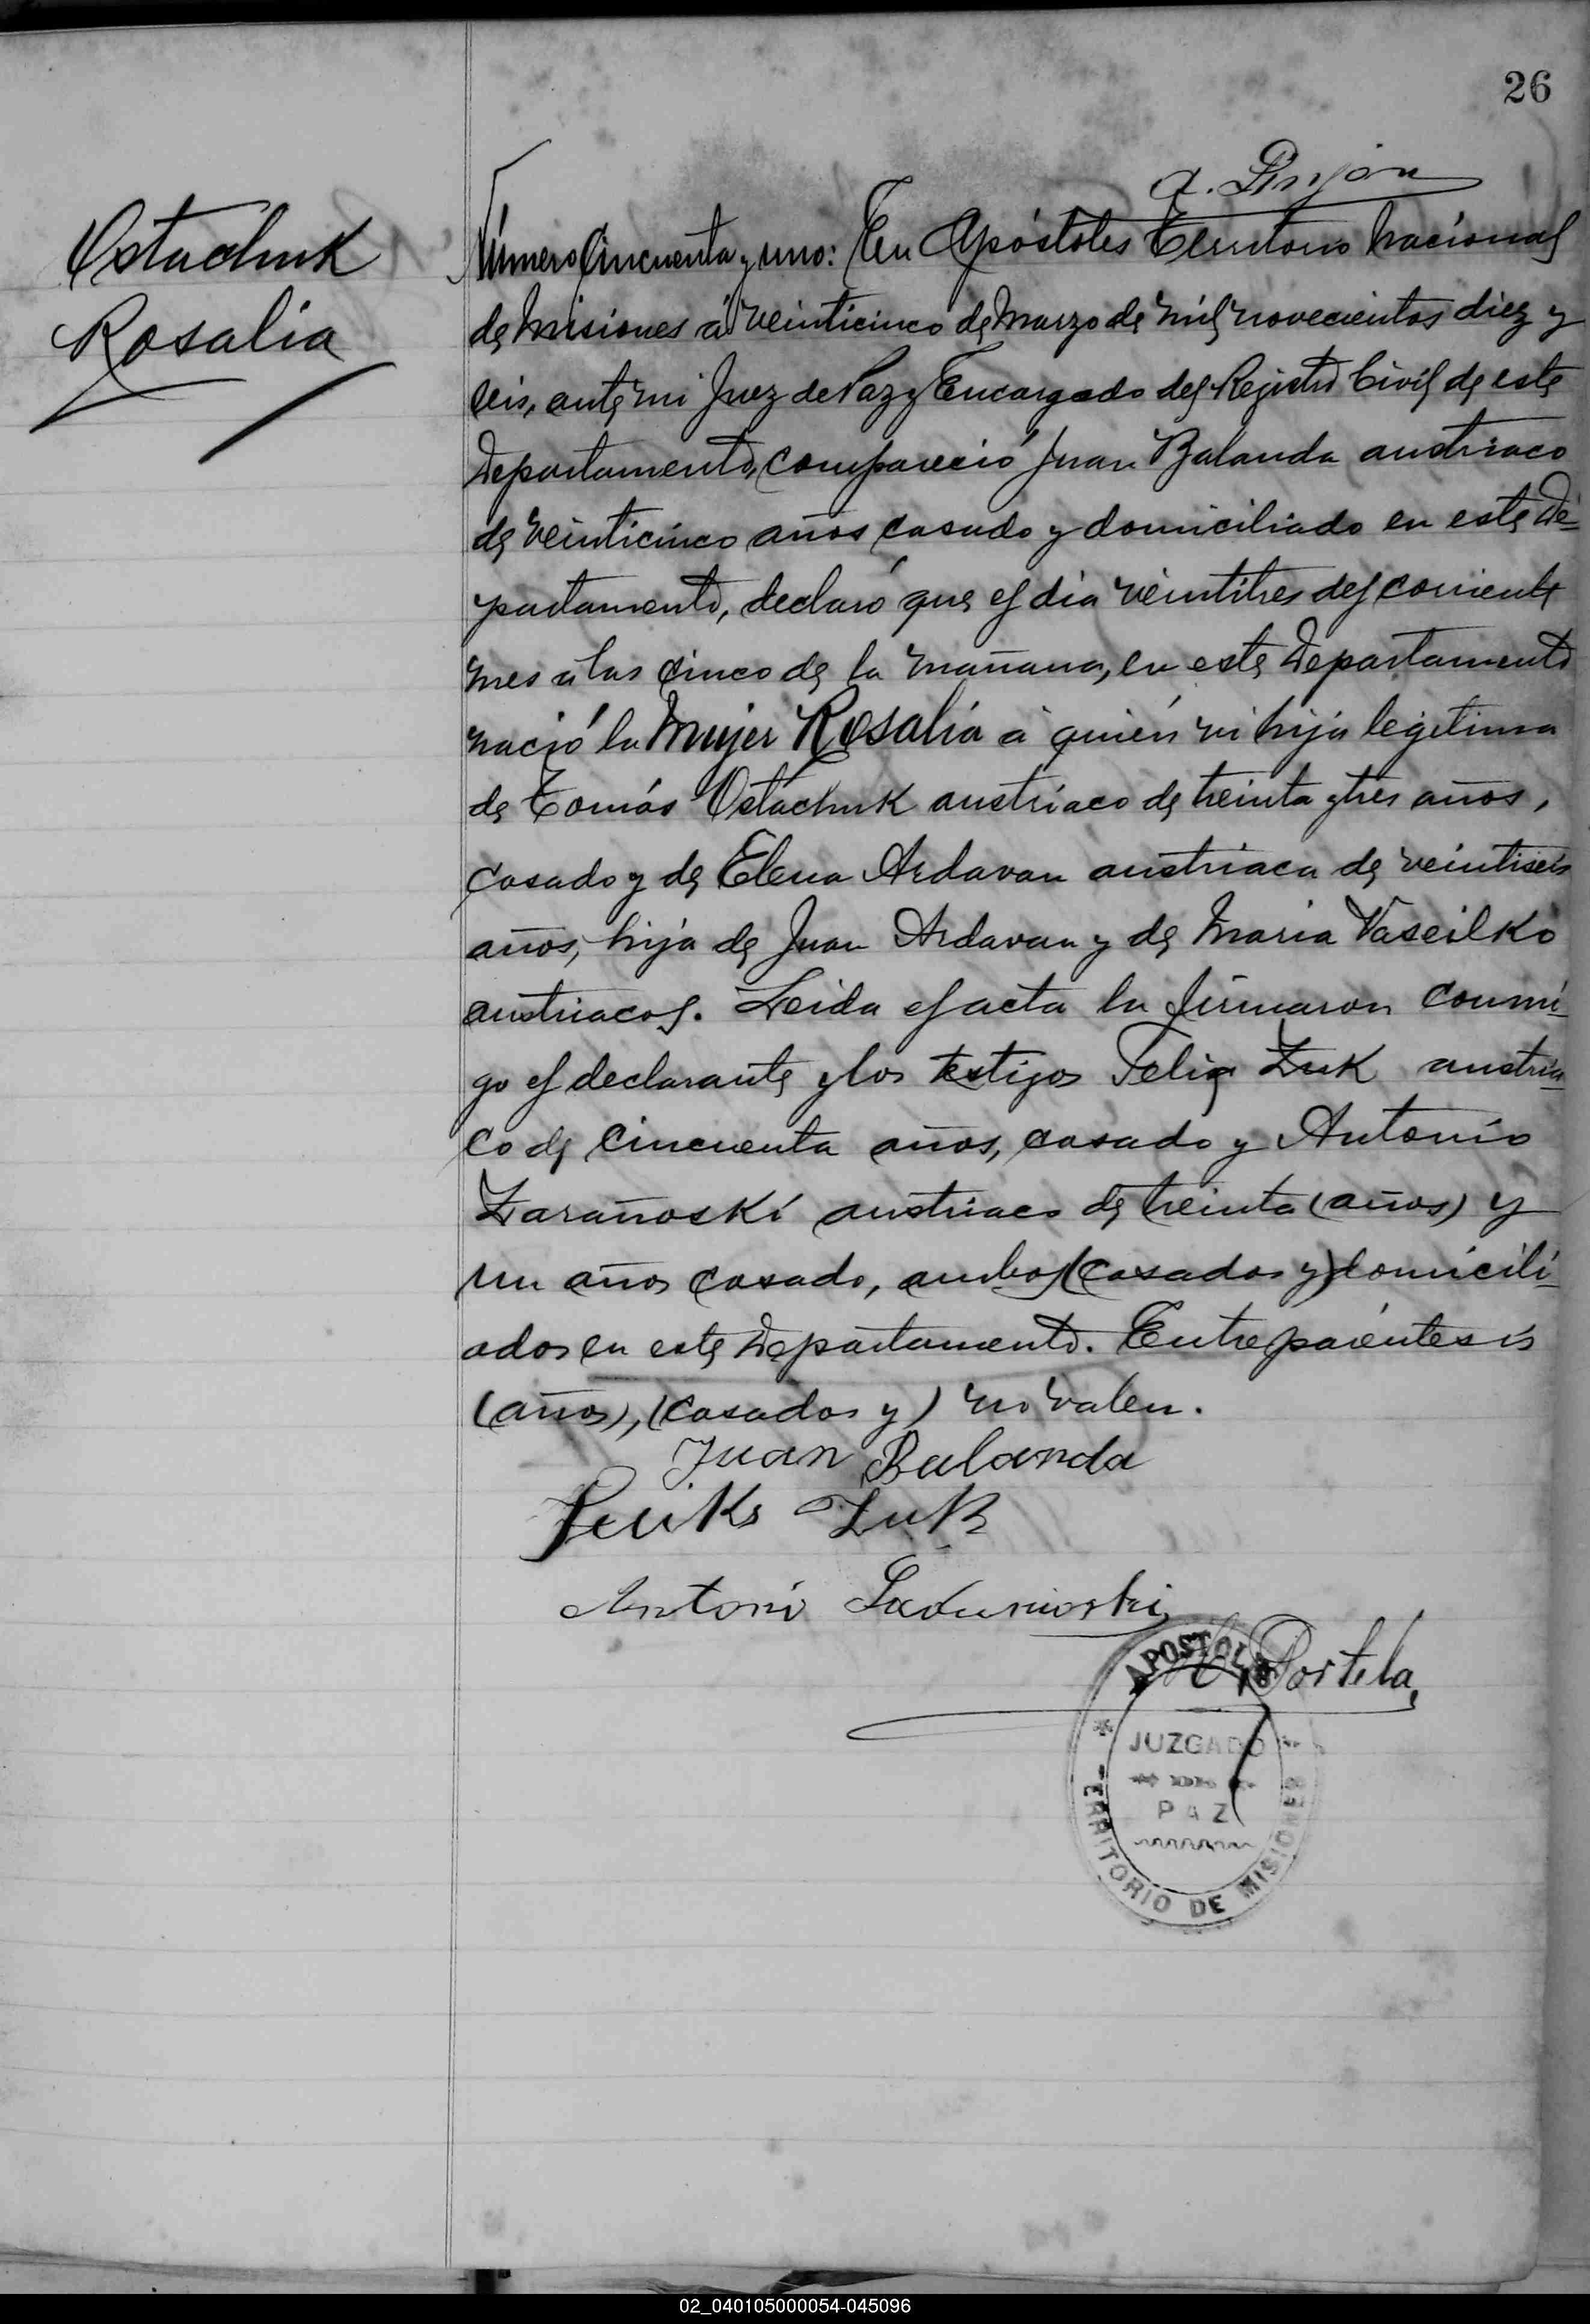 26
Ostachuk
Rosalia
Número Cincuenta y uno: En Apóstoles Territorio Nacional
de Misiones á veinticinco de Marzo de mil novecientos diez y
seis, ante mi Juez de Paz y Encargado del Registro Civil de este
Departamento, compareció Juan Balanda austriaco
de veinticinco años casado y domiciliado en este De-
partamento, declaró que el dia veintitres del corriente
mes a las cinco de la mañana, en este Departamento
nació la Mujer Rosalia á quién vi hija legitima
de Tomás Ostachuk austriaco de treinta y tres años,
casado y de Elena Ardavan austriaca de veintiseis
años, hija de Juan Ardavan y de Maria Vaseilko
austriacos. Leida el acta la firmaron conmi-
go el declarante y los testigos Felix Zuk austria-
co de cincuenta años, casado y Antonio
Zarañoski austriaco de treinta (años) y
un años casado, ambos (casados y) domicili-
ados en este Departamento. Entreparéntesis
(años), (casados y) no valen.
Juan Balanda
Zuk
Antoni
Portela
APOSTOLES
JUZGADO
PAZ
TERRITORIO DE MISIONES
02_040105000054-045096